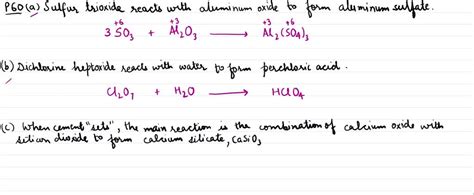 P60(a) Sulfur trioxide reacts with aluminum oxide to form aluminum sulfate.
+6 +3 +3 +6
3 SO₃ + Al₂O₃ ⟶ Al₂(SO₄)₃
(b) Dichlorine heptoxide reacts with water to form perchloric acid.
Cl₂O₇ + H₂O ⟶ HClO₄
(c) When cement "sets", the main reaction is the combination of calcium oxide with
silicon dioxide to form calcium silicate, CaSiO₃